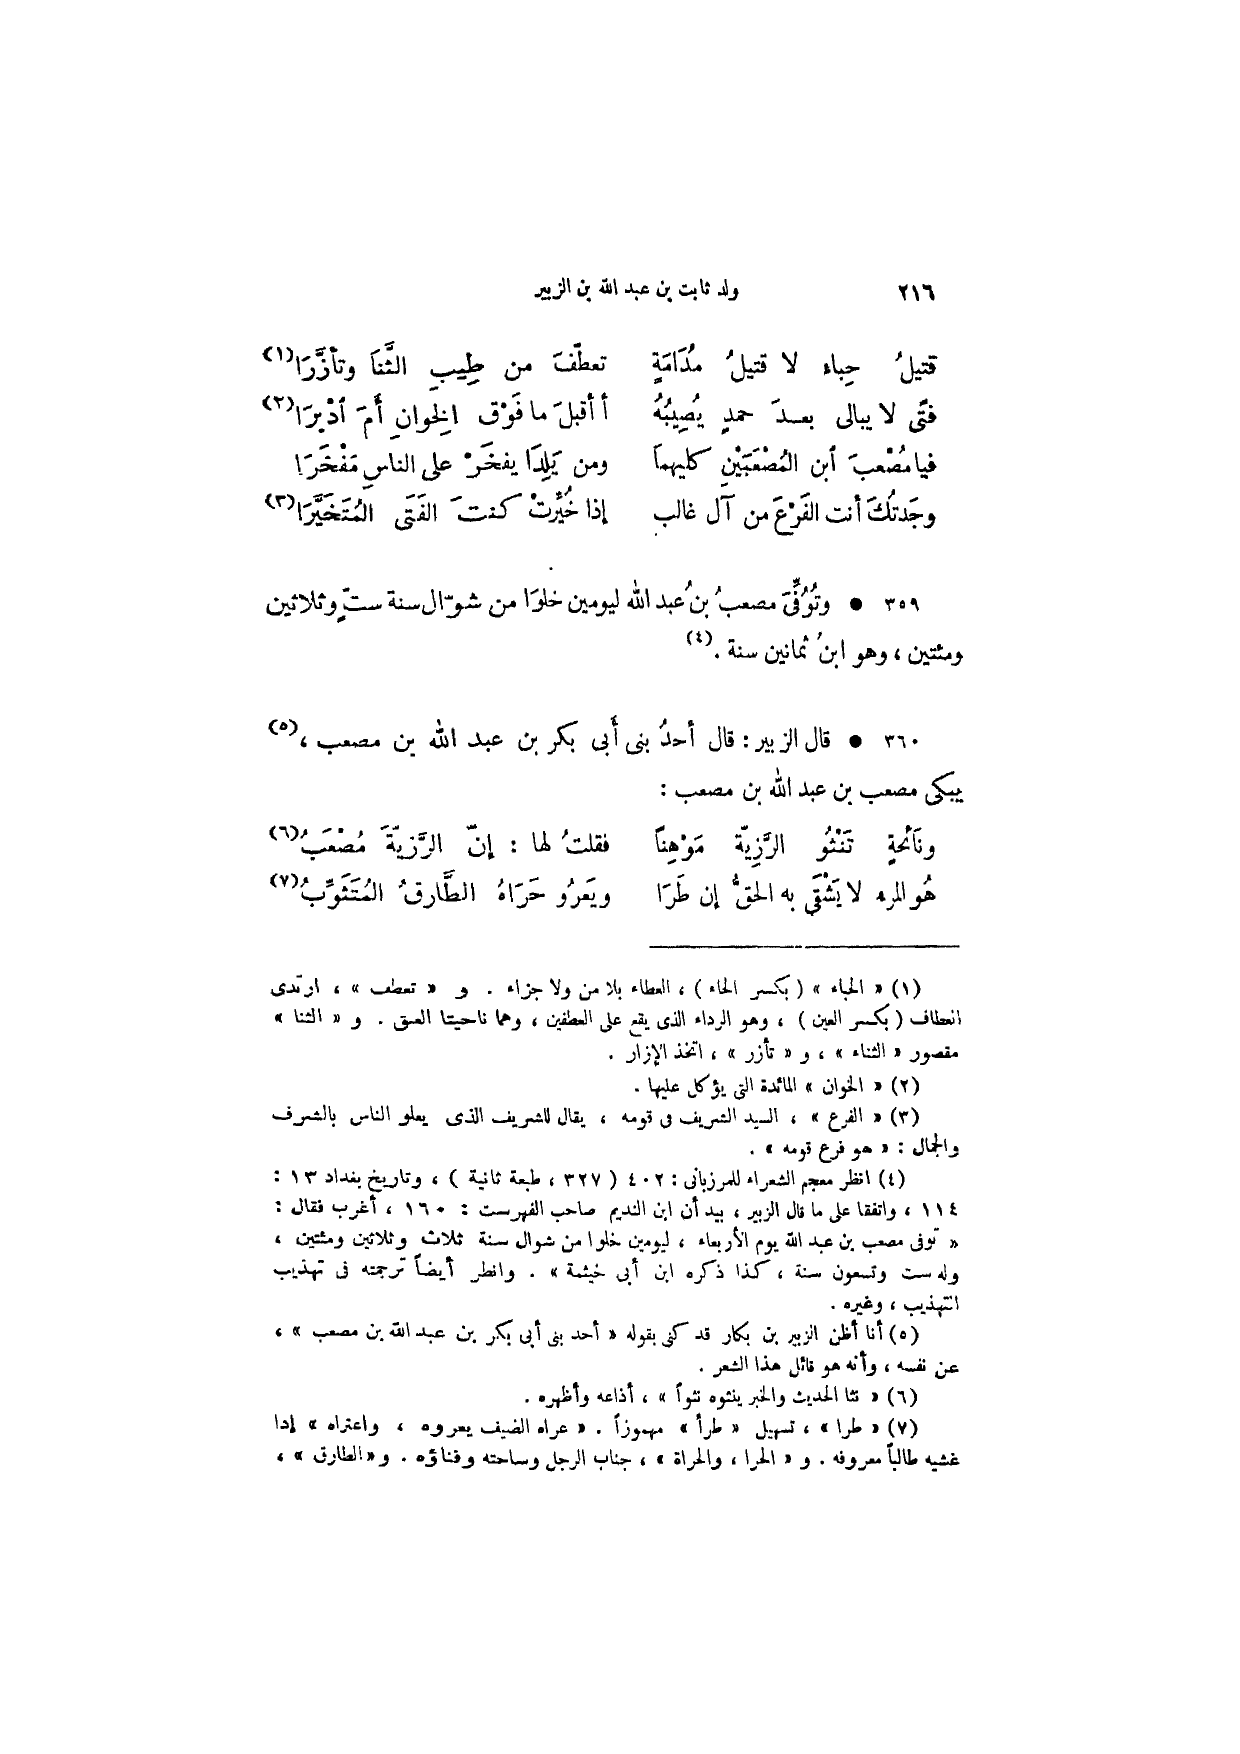 ٢١٦ ولد ثابت بن عبد الله بن الزبير
قتيلُ حِباء لا قتيلُ مُدَامَةٍ تعطّفَ من طِيبِ الثَّنَا وتأزَّرَا(١)
فتًى لا يبالى بعدَ حمدٍ يُصِيبُهُ أأقبلَ ما فَوْق الِخوانِ أَمَ ادْبرَا(٢)
فيا مُصْعبَ ابن المُصْعَبَيْنِ كليهما ومن يَلِدَا يفخَرْ على الناسِ مَفْخَرَا
وجَدتُكَ أنت الفَرْعَ من آل غالب إذا خُيِّرتْ كنتَ الفَتَى المُتَخَيَّرَا(٣)
٣٥٩ ● وتُوُفِّىَ مصعبُ بنُ عبد الله ليومين خلوَا من شوّال سنة ستٍّ وثلاثين
ومئتين ، وهو ابنُ ثمانين سنة .(٤)
٣٦٠ ● قال الزبير : قال أحدُ بنى أَبى بكر بن عبد الله بن مصعب ،(٥)
يبكى مصعب بن عبد الله بن مصعب :
ونَائحةٍ تَنْثُو الرَّزِيّة مَوْهِنًا فقلتُ لها : إنّ الرَّزيّةَ مُصْعَبُ(٦)
هُو المرء لا يَشْقَى به الحقُّ إن طَرَا ويَعرُو حَرَاهُ الطَّارقُ المُتَثَوِّبُ(٧)
(١) « الحباء » ( بكسر الحاء ) ، العطاء بلا من ولا جزاء . و « تعطف » ، ارتدى
العطاف ( بكسر العين ) ، وهو الرداء الذى يقع على العطفين ، وهما ناحيتا العنق . و « الثنا »
مقصور « الثناء » ، و « تأزر » ، اتخذ الإزار .
(٢) « الخوان » المائدة التى يؤكل عليها .
(٣) « الفرع » ، السيد الشريف فى قومه ، يقال للشريف الذى يعلو الناس بالشرف
والجمال : « هو فرع قومه » .
(٤) انظر معجم الشعراء للمرزبانى : ٤٠٢ ( ٣٢٧ ، طبعة ثانية ) ، وتاريخ بغداد ١٣ :
١١٤ ، واتفقا على ما قال الزبير ، بيد أن ابن النديم صاحب الفهرست : ١٦٠ ، أغرب فقال :
« توفى مصعب بن عبد الله يوم الأربعاء ، ليومين خلوا من شوال سنة ثلاث وثلاثين ومئتين ،
وله ست وتسعون سنة ، كذا ذكره ابن أبى خيثمة » . وانظر أيضاً ترجمته فى تهذيب
التهذيب ، وغيره .
(٥) أنا أظن الزبير بن بكار قد كنى بقوله « أحد بنى أبى بكر بن عبد الله بن مصعب » ،
عن نفسه ، وأنه هو قائل هذا الشعر .
(٦) « نثا الحديث والخبر ينثوه نثواً » ، أذاعه وأظهره .
(٧) « طرا » ، تسهيل « طرأ » مهموزاً . « عراه الضيف يعروه ، واعتراه » إذا
غشيه طالباً معروفه . و « الحرا ، والحراة » ، جناب الرجل وساحته وفناؤه . و« الطارق » ،